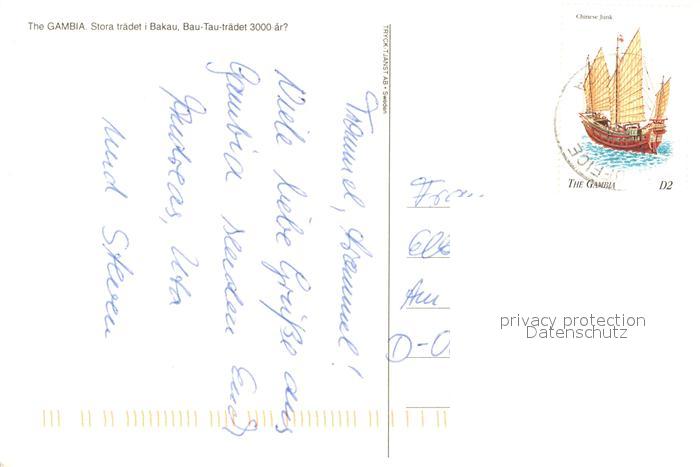 The GAMBIA. Stora trädet i Bakau, Bau-Tau-trädet 3000-år?
TRYCK-TJÄNST AB • Sweden
Trommel, Trommel!
Viele liebe Grüße aus
Gambia senden Euch
Andreas, Uta
und Steven
Chinese Junk
THE GAMBIA D2
OFFICE
Am
D-
privacy protection
Datenschutz